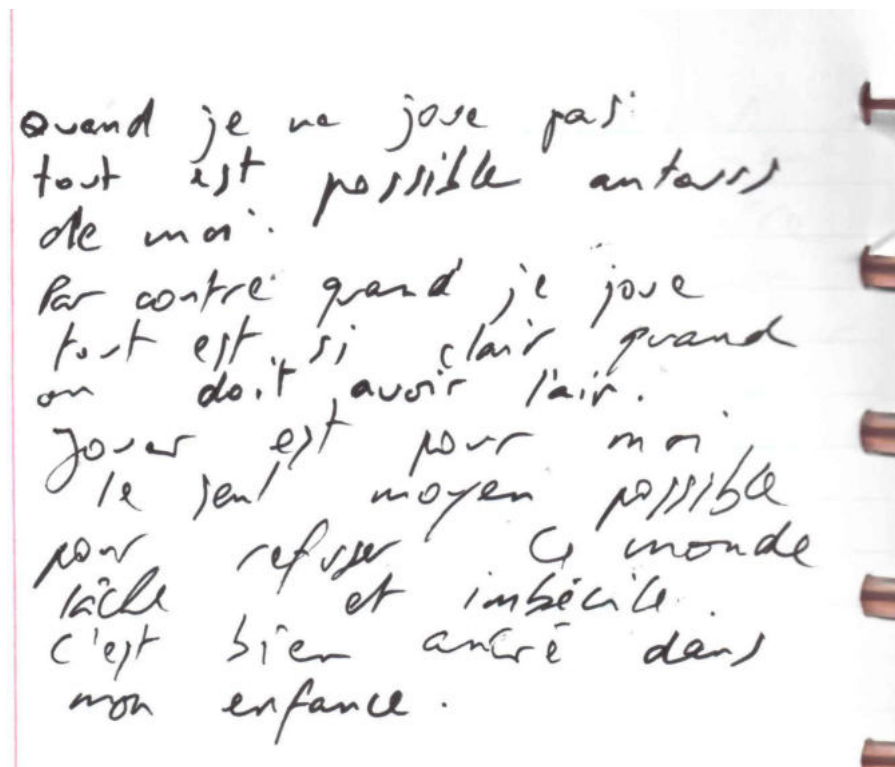 Quand je ne joue pas
tout est possible autour
de moi.
Par contre quand je joue
tout est si clair quand
on doit avoir l'air.
Jouer est pour moi
le seul moyen possible
pour refuser ce monde
lâche et imbécile.
C'est bien ancré dans
mon enfance.